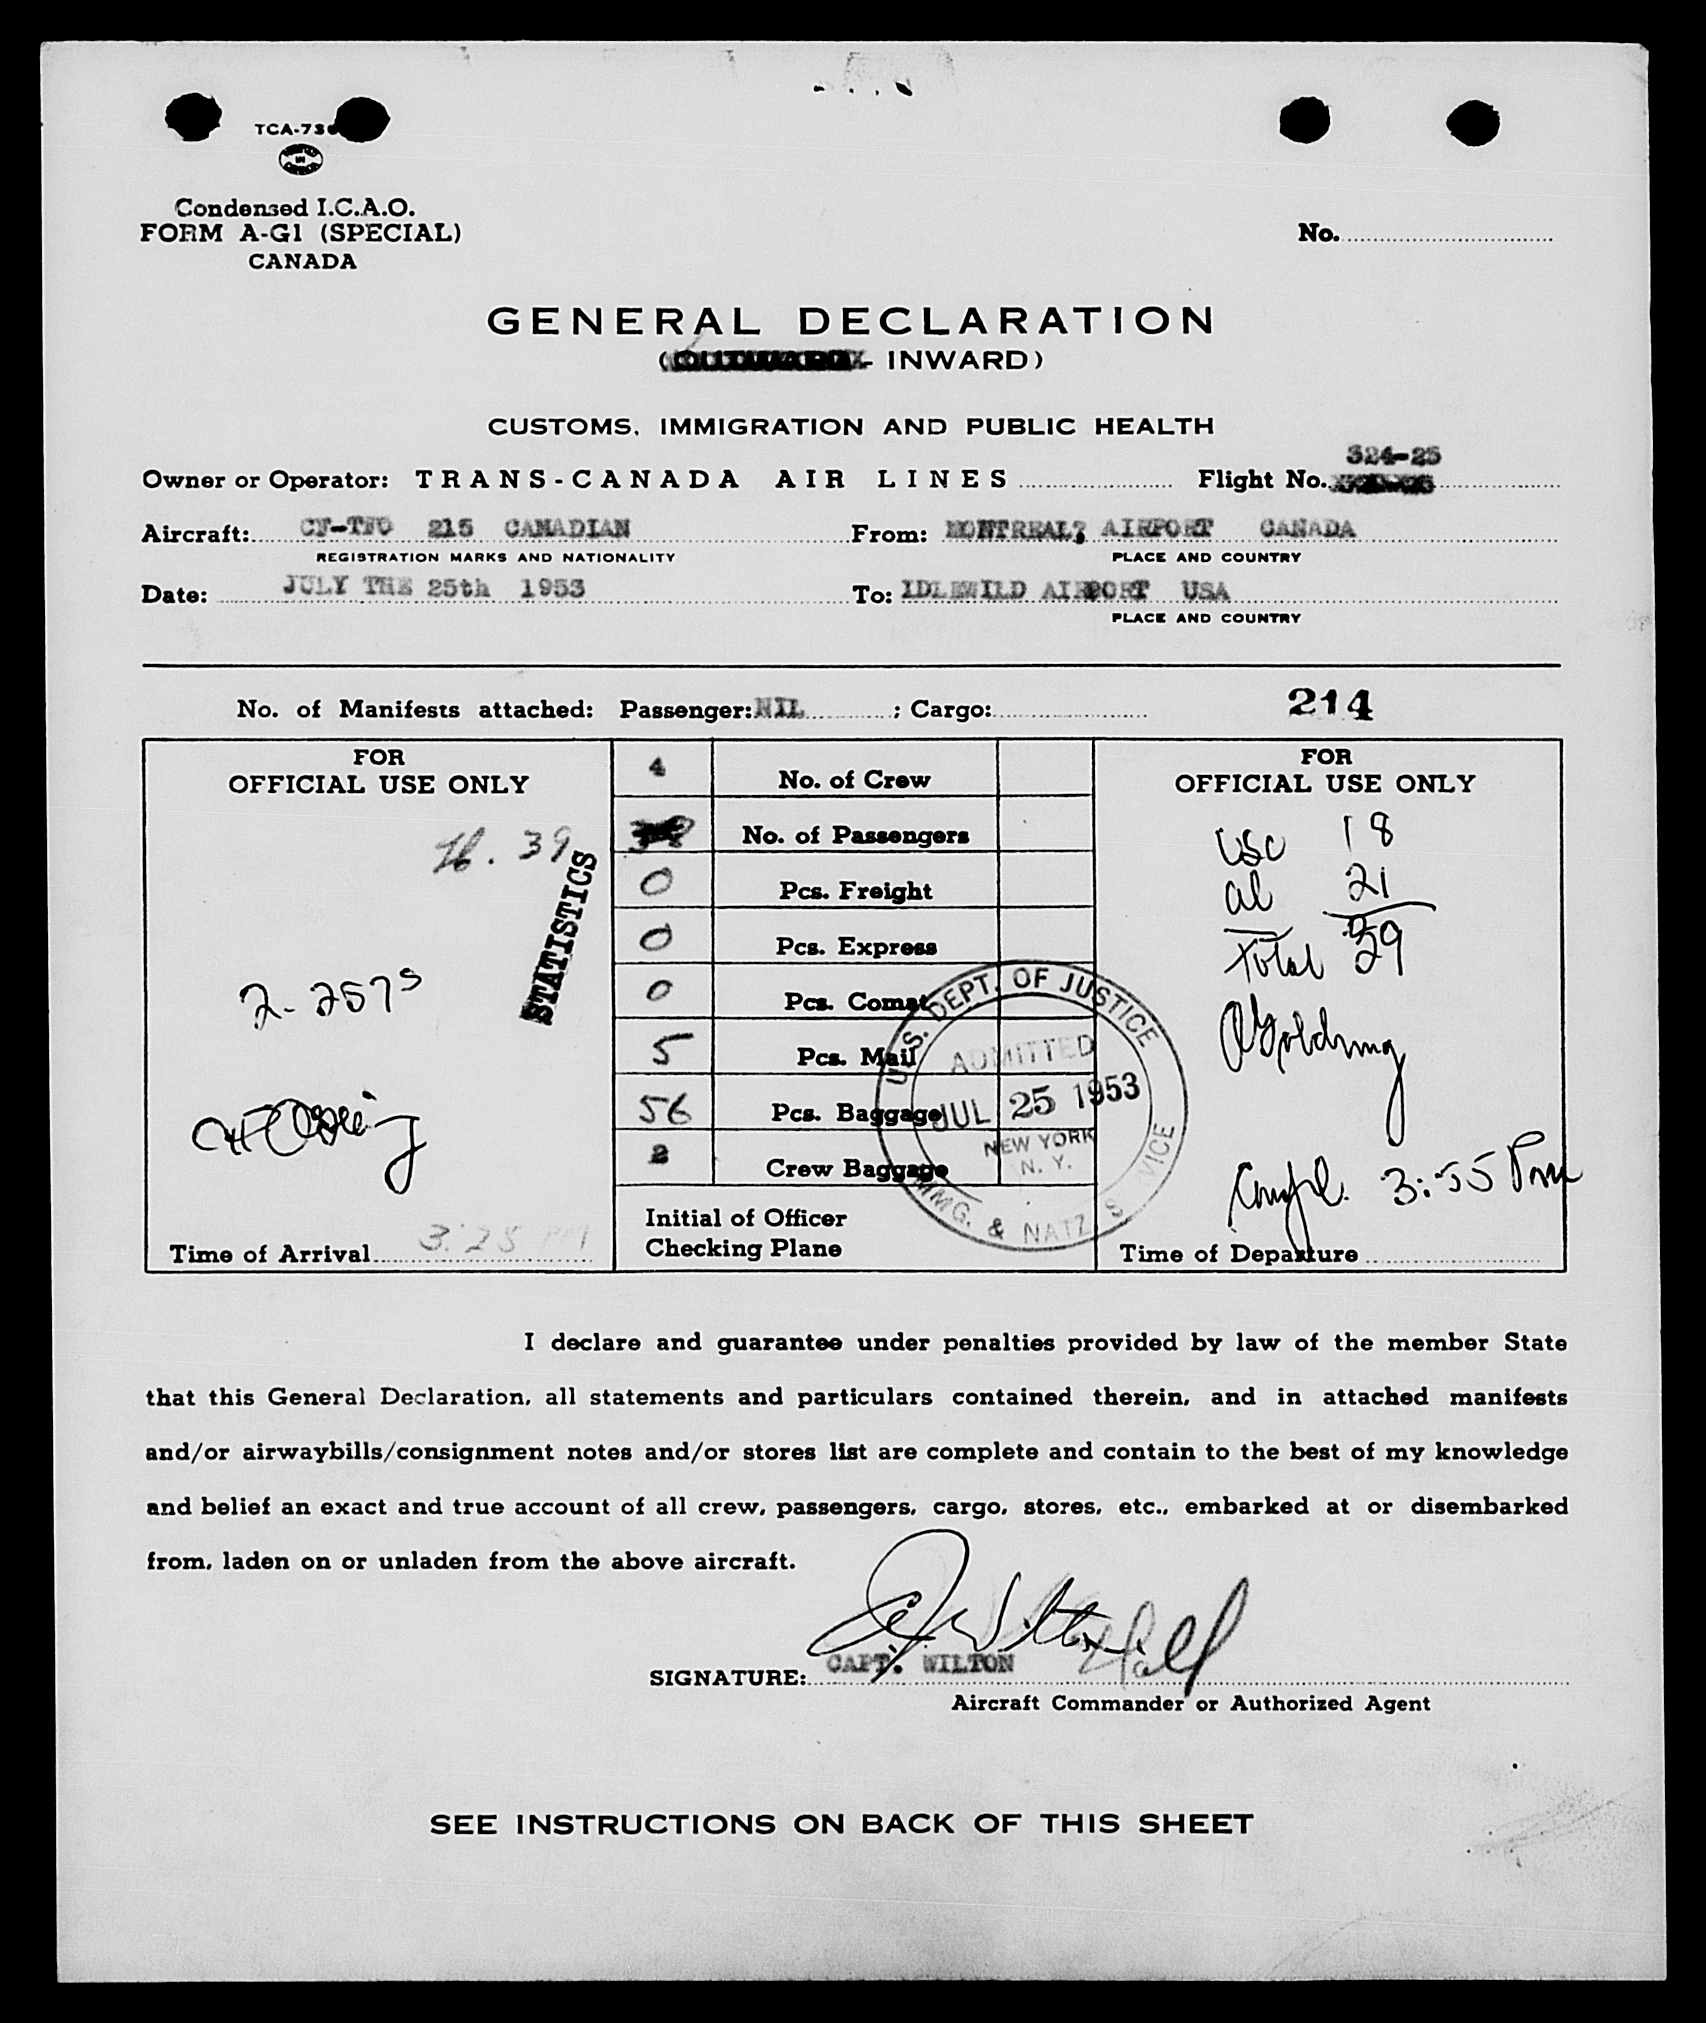 TCA-73
Condensed I.C.A.O.
FORM A-G1 (SPECIAL)
CANADA
No.
GENERAL DECLARATION
( - INWARD)
CUSTOMS, IMMIGRATION AND PUBLIC HEALTH
324-25
Owner or Operator: TRANS-CANADA AIR LINES Flight No.
Aircraft: 215 CANADIAN From: MONTREAL, AIRPORT CANADA
REGISTRATION MARKS AND NATIONALITY PLACE AND COUNTRY
Date: JULY THE 25th 1953 To: IDLEWILD AIRPORT USA
PLACE AND COUNTRY
No. of Manifests attached: Passenger: NIL ; Cargo: 214
FOR
OFFICIAL USE ONLY
39
STATISTICS
2- 257s
Time of Arrival 3:25 PM
4 No. of Crew
No. of Passengers
0 Pcs. Freight
0 Pcs. Express
0 Pcs. Comat
5 Pcs. Mail
56 Pcs. Baggage
2 Crew Baggage
Initial of Officer
Checking Plane
U.S. DEPT. OF JUSTICE
ADMITTED
JUL 25 1953
NEW YORK
N. Y.
IMMG. & NATZ. S VICE
FOR
OFFICIAL USE ONLY
usc 18
al 21
Total 39
Compl. 3:55 Pm
Time of Departure
I declare and guarantee under penalties provided by law of the member State
that this General Declaration, all statements and particulars contained therein, and in attached manifests
and/or airwaybills/consignment notes and/or stores list are complete and contain to the best of my knowledge
and belief an exact and true account of all crew, passengers, cargo, stores, etc., embarked at or disembarked
from, laden on or unladen from the above aircraft.
SIGNATURE: CAPT. WILTON
Aircraft Commander or Authorized Agent
SEE INSTRUCTIONS ON BACK OF THIS SHEET